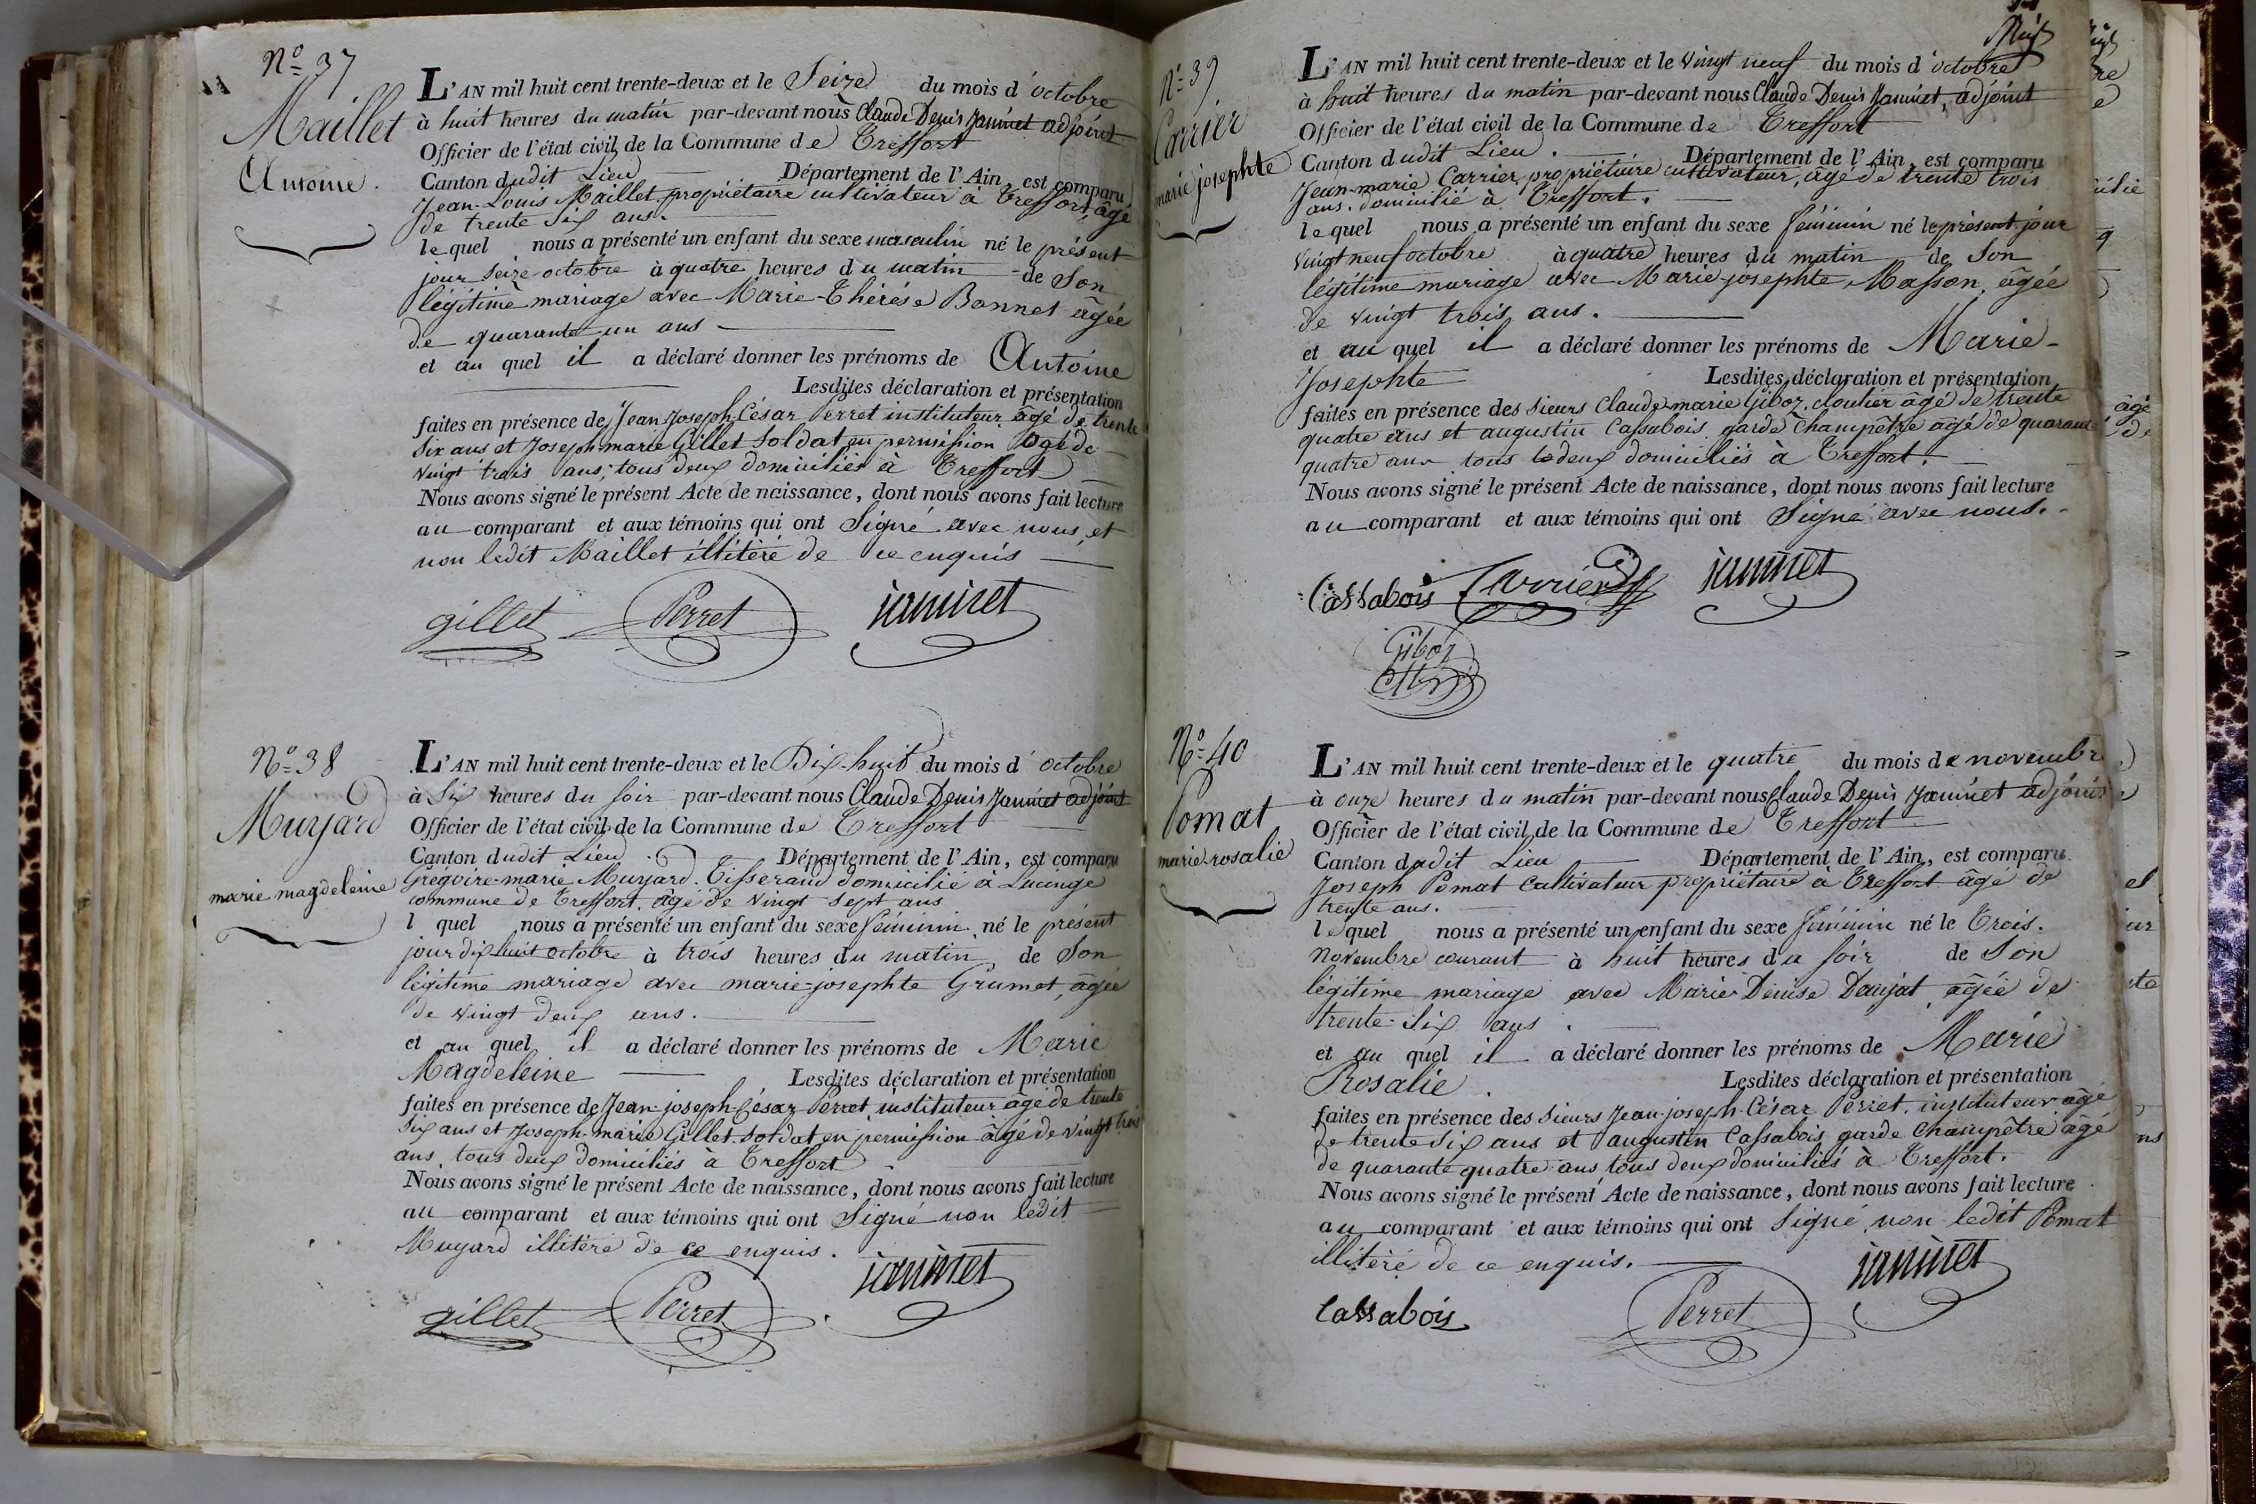 Nº 37
Maillet
Antoine.
L'AN mil huit cent trente-deux et le Seize du mois d'octobre
à huit heures du matin par-devant nous Claude Denis Janinet adjoint
Officier de l'état civil de la Commune de Treffort
Canton dudit Lieu Département de l'Ain, est comparu
Jean-Louis Maillet, propriétaire cultivateur à Treffort, âgé
de trente six ans.
lequel nous a présenté un enfant du sexe masculin né le présent
jour seize octobre à quatre heures du matin de Son
légitime mariage avec Marie-Thérése Bonnet âgée
de quarante un ans
et au quel il a déclaré donner les prénoms de Antoine
Lesdites déclaration et présentation
faites en présence de Jean Joseph César Perret instituteur âgé de trente
Six ans et Joseph-marie Gillet Soldat en permission âgé de
vingt trois ans, tous deux domiciliés à Treffort
Nous avons signé le présent Acte de naissance, dont nous avons fait lecture
au comparant et aux témoins qui ont Signé avec nous, et
non ledit Maillet illitéré de ce enquis
gillet Perret janinet
Nº 38
Muyard
marie magdeleine
L'AN mil huit cent trente-deux et le Dix-huit du mois d'octobre
à Six heures du soir par-devant nous Claude Denis Janinet adjoint
Officier de l'état civil de la Commune de Treffort
Canton dudit Lieu. Département de l'Ain, est comparu
Grégoire-marie Muyard. Tisserand domicilié à Lucinge
commune de Treffort. âgé de vingt sept ans
l quel nous a présenté un enfant du sexe féminin né le présent
jour dix huit octobre à trois heures du matin de Son
légitime mariage avec marie-josephte Grumet, âgée
de vingt deux ans.
et au quel il a déclaré donner les prénoms de Marie
Magdeleine Lesdites déclaration et présentation
faites en présence de Jean-joseph-César Perret instituteur âgé de trente
Six ans et Joseph-marie Gillet Soldat en permission âgé de vingt trois
ans, tous deux domiciliés à Treffort
Nous avons signé le présent Acte de naissance, dont nous avons fait lecture
au comparant et aux témoins qui ont Signé non ledit
Muyard illitéré de ce enquis.
gillet Perret janinet
Nº 39
Carrier
marie josephte
L'AN mil huit cent trente-deux et le vingt neuf du mois d'octobre
à huit heures du matin par-devant nous Claude Denis Janinet, adjoint
Officier de l'état civil de la Commune de Treffort
Canton dudit Lieu. Département de l'Ain, est comparu
Jean-marie Carrier, propriétaire cultivateur, âgé de trente trois
ans. domicilié à Treffort.
lequel nous a présenté un enfant du sexe féminin né le présent jour
vingt neuf octobre à quatre heures du matin de Son
légitime mariage avec Marie josephte Masson, âgée
de vingt trois ans.
et au quel il a déclaré donner les prénoms de Marie-
Josephte Lesdites déclaration et présentation
faites en présence des Sieurs Claude-marie Giboz, cloutier âgé de trente
quatre ans et augustin Cassabois garde Champêtre âgé de quarante
quatre ans tous les deux domiciliés à Treffort.
Nous avons signé le présent Acte de naissance, dont nous avons fait lecture
au comparant et aux témoins qui ont Signé avec nous.
Cassabois Carrier janinet
Giboz
Nº 40
Pomat
marie-rosalie
L'AN mil huit cent trente-deux et le quatre du mois de novembre
à onze heures du matin par-devant nous Claude Denis Janinet adjoint
Officier de l'état civil de la Commune de Treffort
Canton dudit Lieu Département de l'Ain, est comparu
Joseph Pomat Cultivateur propriétaire à Treffort âgé de
trente ans.
lequel nous a présenté un enfant du sexe féminin né le Trois.
Novembre courant à huit heures du soir de Son
légitime mariage avec Marie Denise Daujat, âgée de
trente-Six ans.
et au quel il a déclaré donner les prénoms de Marie
Rosalie. Lesdites déclaration et présentation
faites en présence des Sieurs Jean-joseph-César Perret, instituteur âgé
de trente Six ans et augustin Cassabois garde Champêtre âgé
de quarante quatre ans, tous deux domiciliés à Treffort.
Nous avons signé le présent Acte de naissance, dont nous avons fait lecture
au comparant et aux témoins qui ont Signé non ledit Pomat
illitéré de ce enquis.
Cassabois Perret janinet